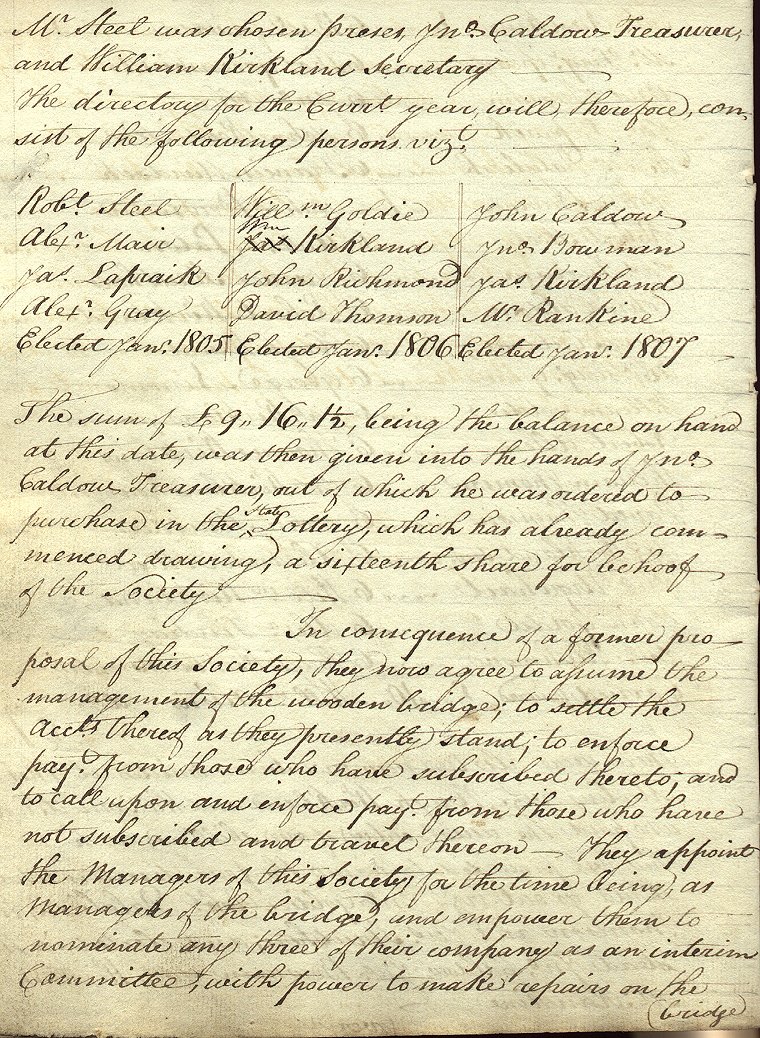 Mr. Steel was chosen preses, Jno. Caldow Treasurer,
and William Kirkland Secretary
The directory for the Currt. year, will, therefore, con-
sist of the following persons. vizt.
Robt. Steel Willm. Goldie John Caldow
Wm
Alexr. Mair Jas. Kirkland Jno. Bowman
Jas. Lapraik John Richmond Jas. Kirkland
Alexr. Gray David Thomson Mr. Rankine
Elected Janr. 1805 Elected Janr. 1806 Elected Janr. 1807
The sum of £9,, 16,, 1½, being the balance on hand
at this date, was then given into the hands of Jno.
Caldow Treasurer, out of which he was ordered to
State
purchase in the ^ Lottery, which has already com-
menced drawing, a sixteenth share for behoof
of the Society
In consequence of a former pro-
posal of this Society, they now agree to assume the
management of the wooden bridge; to settle the
Accts. thereof as they presently stand; to enforce
payt. from those who have subscribed thereto; and
to call upon and enforce payt. from those who have
not subscribed and travel thereon — They appoint
the Managers of this Society for the time being, as
Managers of the bridge, and empower them to
nominate any three of their company as an interim
Committee, with power to make repairs on the
bridge